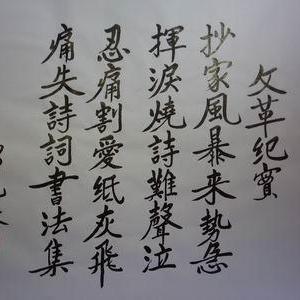 文革纪實
抄家風暴来勢急
揮淚燒詩難聲泣
忍痛割愛纸灰飛
痛失詩詞書法集